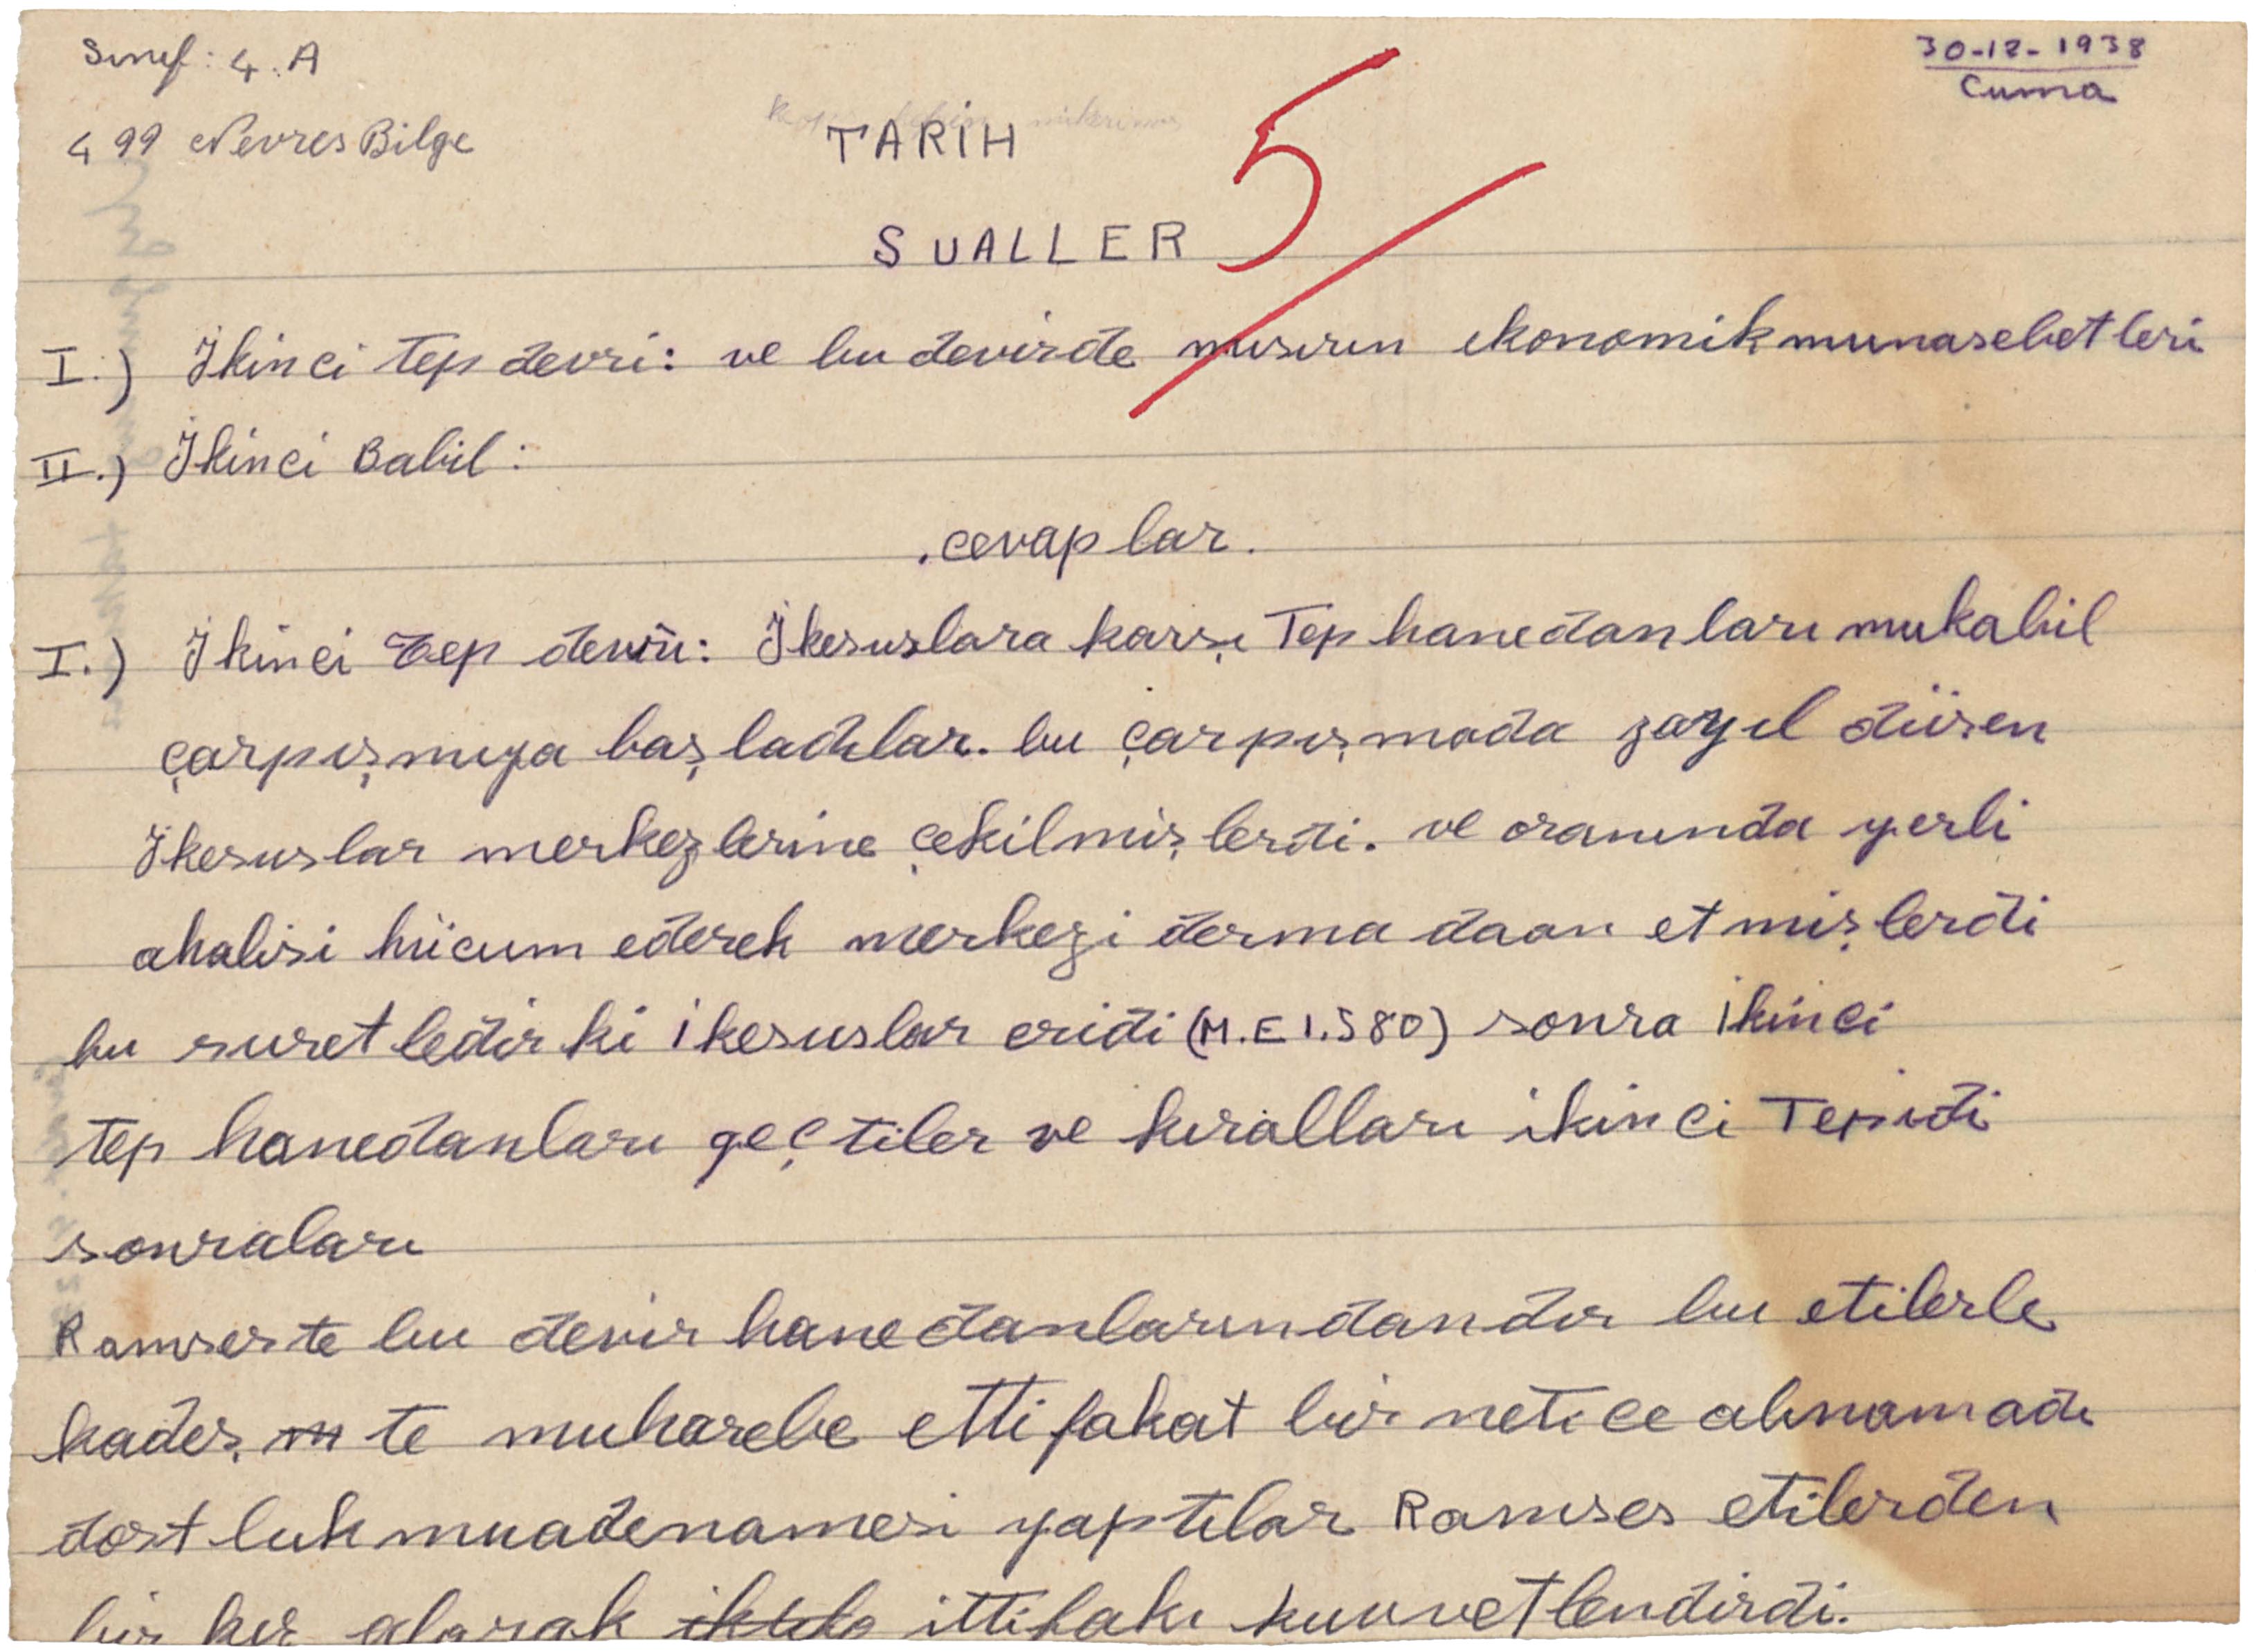 Sınıf: 4.A
30-12-1938
Cuma
499 Nevres Bilge
TARİH
5
SUALLER
I.) İkinci tep devri: ve bu devirde mısırın ekonomik munasebetleri
II.) İkinci Babil:
.cevaplar.
I.) İkinci Tep devri: İkesuslara karşı Tep hanedanları mukabil
çarpışmıya başladılar. bu çarpışmada zayıl düşen
İkesuslar merkezlerine çekilmişlerdi. ve oranında yerli
ahalisi hücum ederek merkezi derma daan etmişlerdi
bu suretledir ki ikesuslar eridi (M.E 1.580) sonra ikinci
tep hanedanları geçtiler ve kıralları ikinci Tepidi
sonraları
Ramseste bu devir hanedanlarındandır bu etilerle
kadeş te muharebe etti fakat bir netice alınamadı
dostluk muadenamesi yaptılar Ramses etilerden
bir kız alarak ittifakı kuvvetlendirdi.